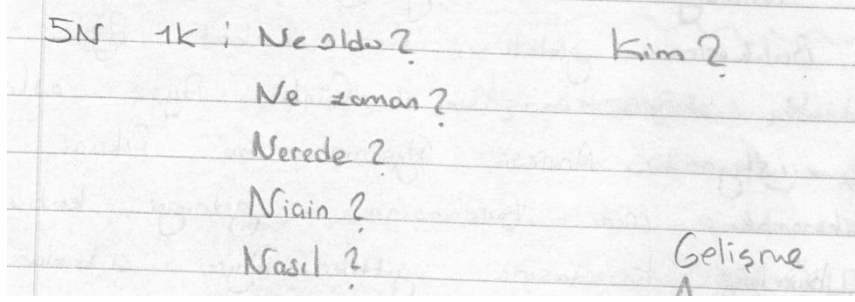 5N 1K : Ne oldu? Kim?
Ne zaman?
Nerede?
Niçin?
Nasıl?
Gelişme